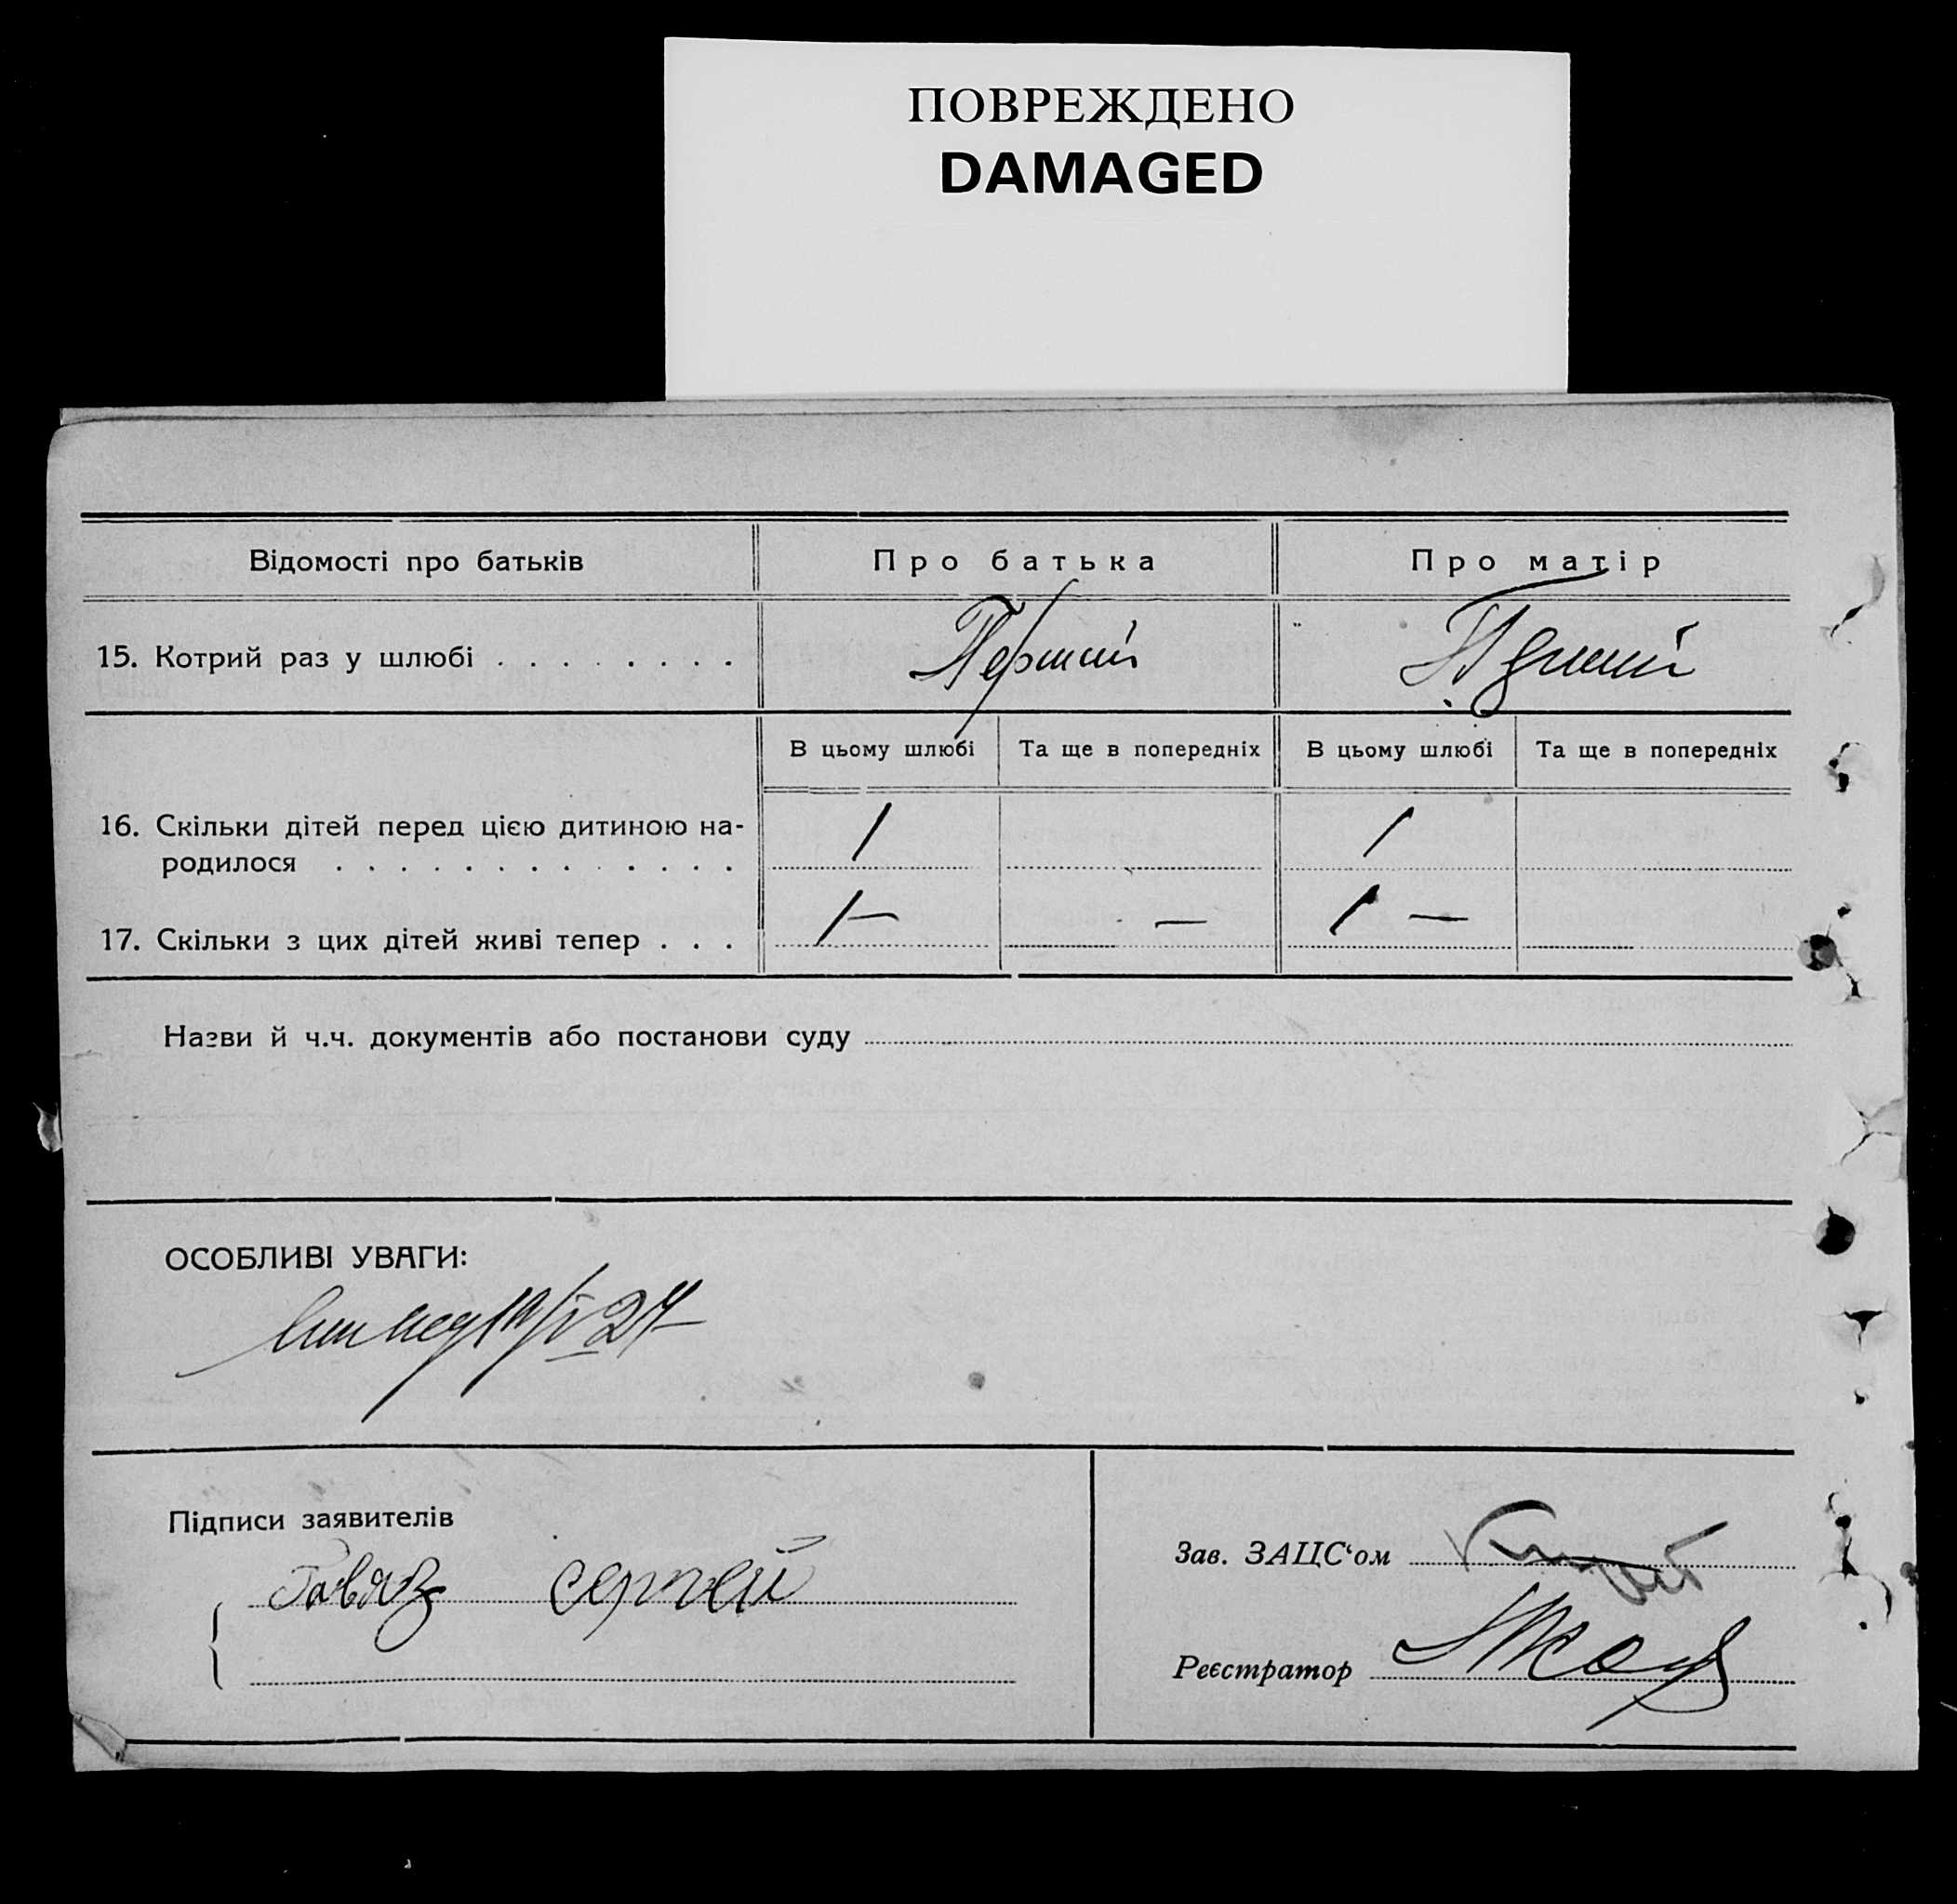 ПОВРЕЖДЕНО
DAMAGED
Відомості про батьків
Про батька
Про матір
15. Котрий раз у шлюбі . . . . . . . .
Перший
Перший
В цьому шлюбі
Та ще в попередніх
В цьому шлюбі
Та ще в попередніх
16. Скільки дітей перед цією дитиною на-
родилося . . . . . . . . . . . . .
1
1
17. Скільки з цих дітей живі тепер . . .
1 —
—
1 —
Назви й ч.ч. документів або постанови суду
ОСОБЛИВІ УВАГИ:
Підписи заявителів
Сергей
Зав. ЗАЦС‘ом
Реєстратор